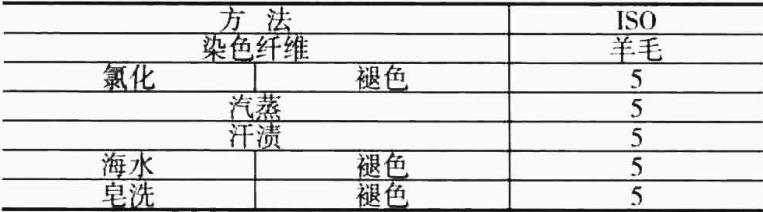 方 法 ISO
染色纤维 羊毛
氯化 褪色 5
汽蒸 5
汗渍 5
海水 褪色 5
皂洗 褪色 5